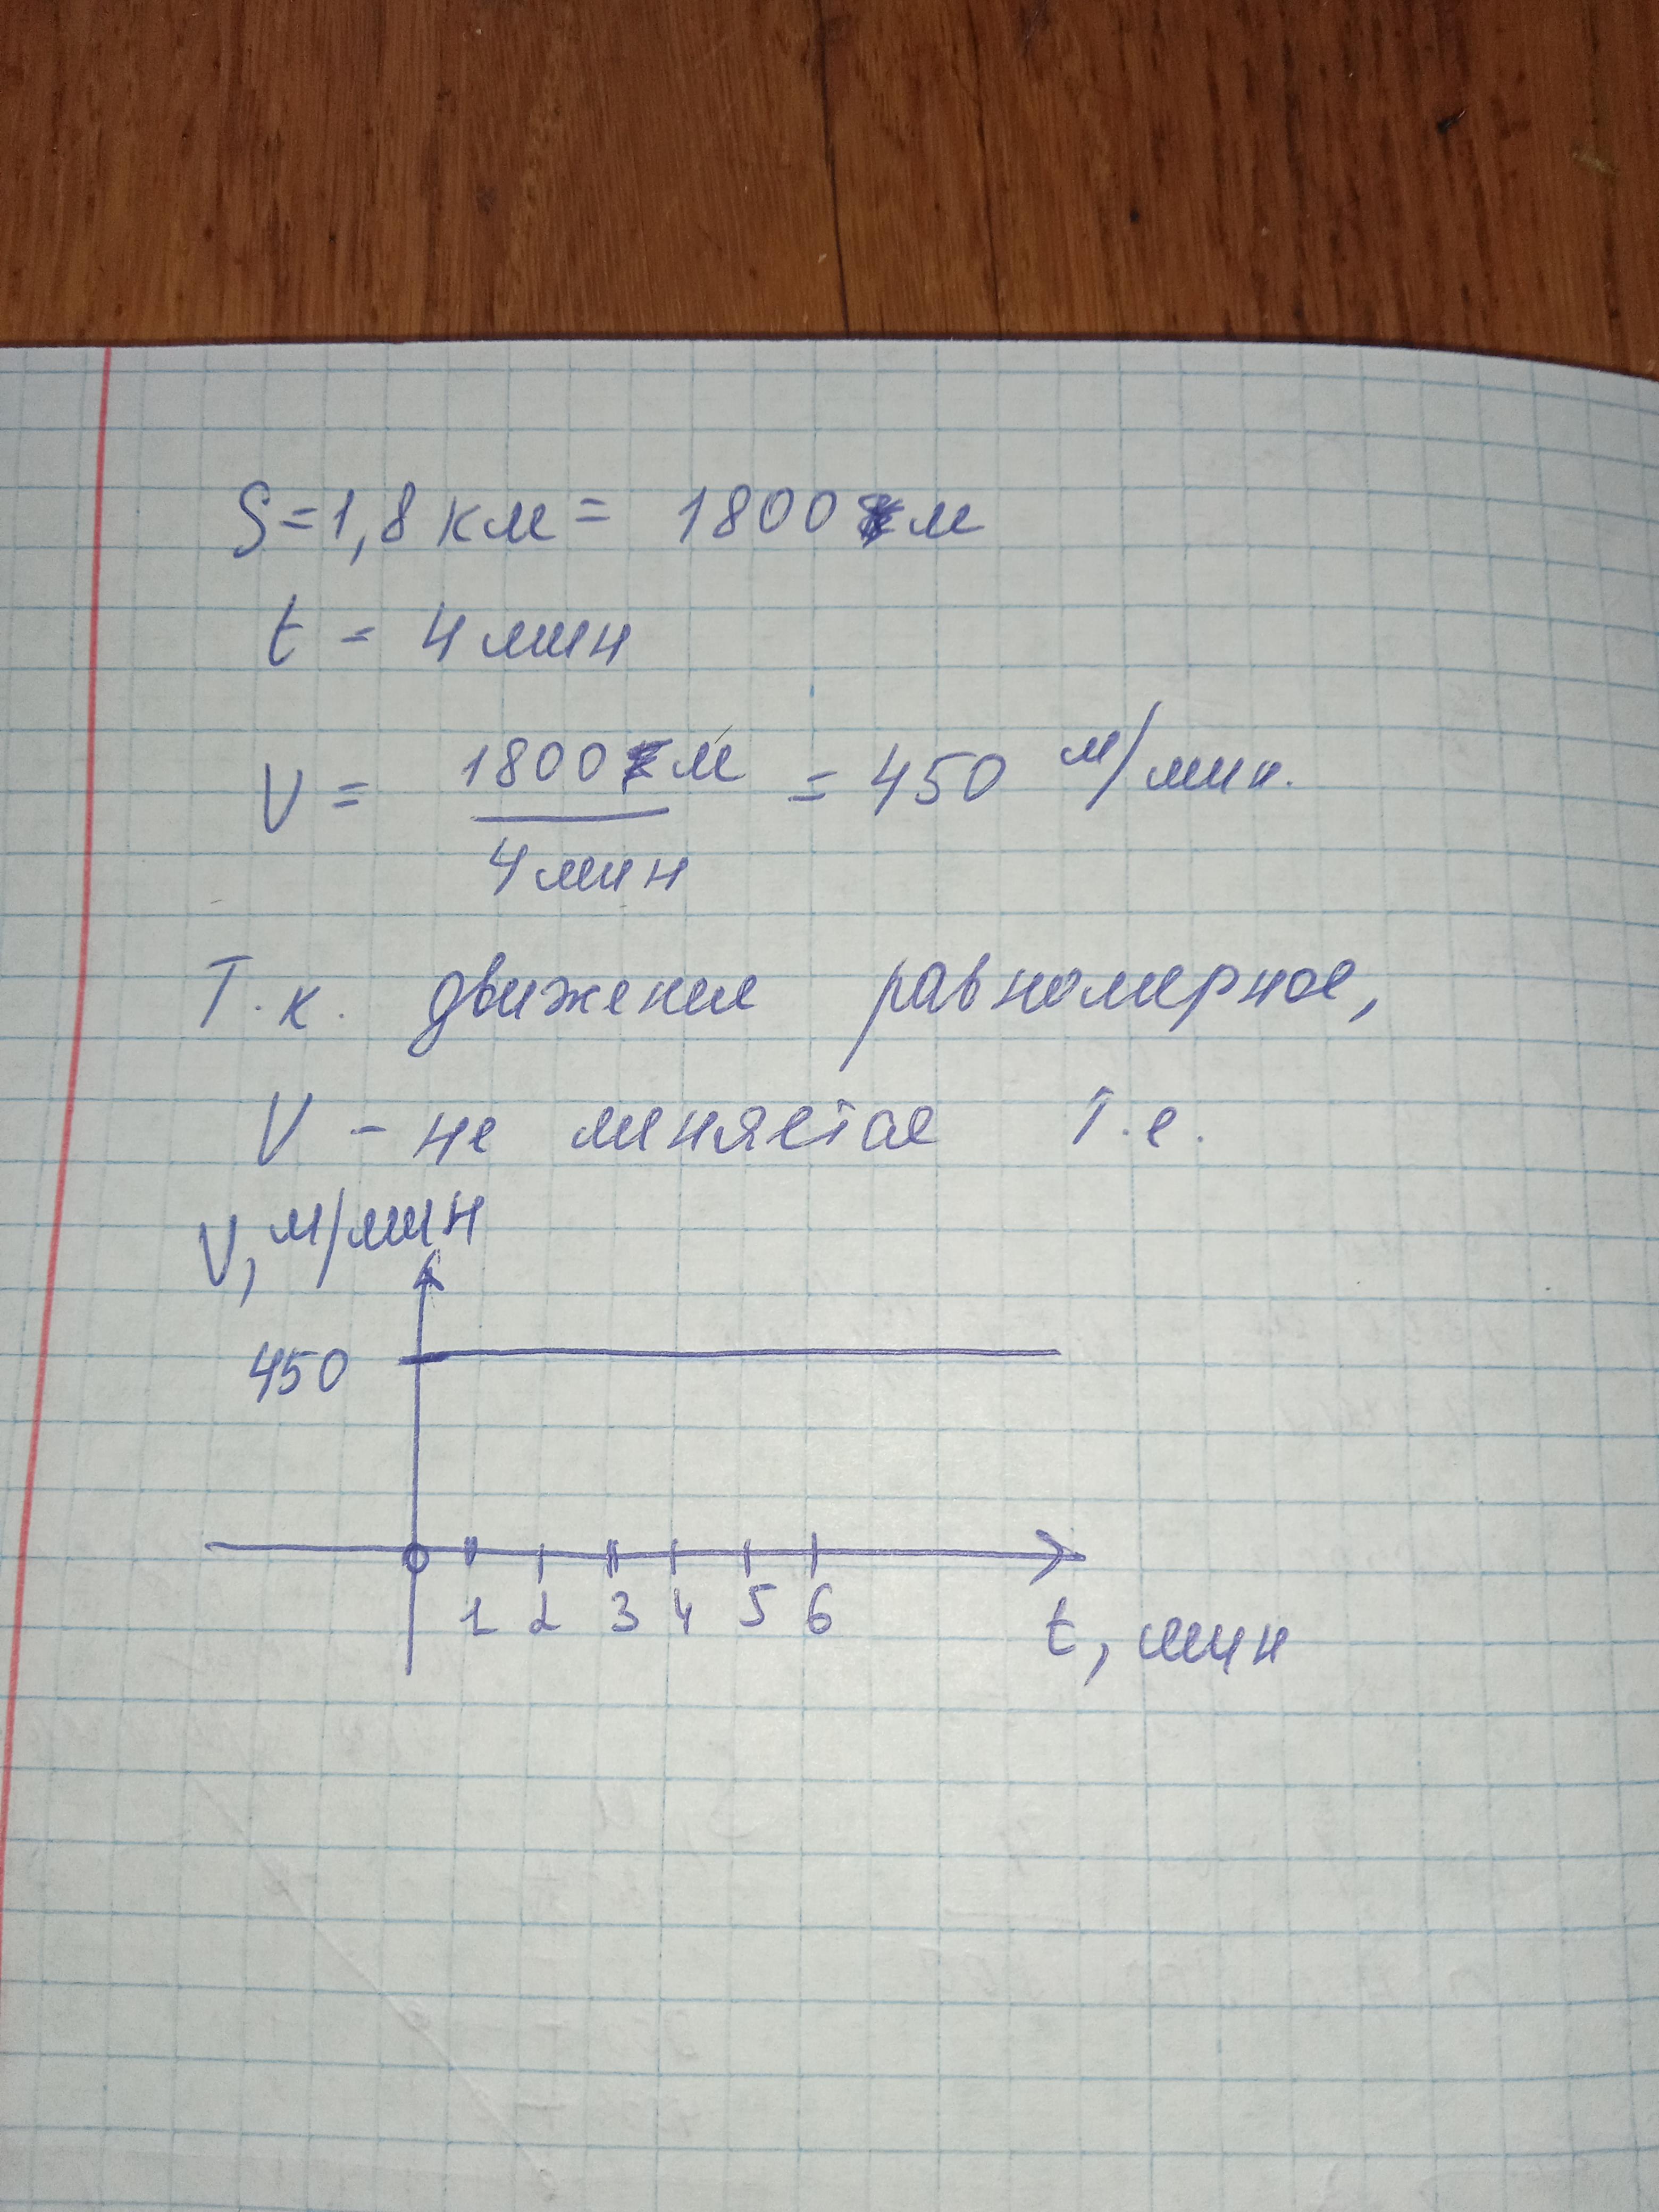 S=1,8 км = 1800 м
t = 4 мин
V = 1800 м / 4 мин = 450 м/мин.
Т.к. движение равномерное,
V - не меняется т.е.
V, м/мин
450
0
1 2 3 4 5 6
t, мин